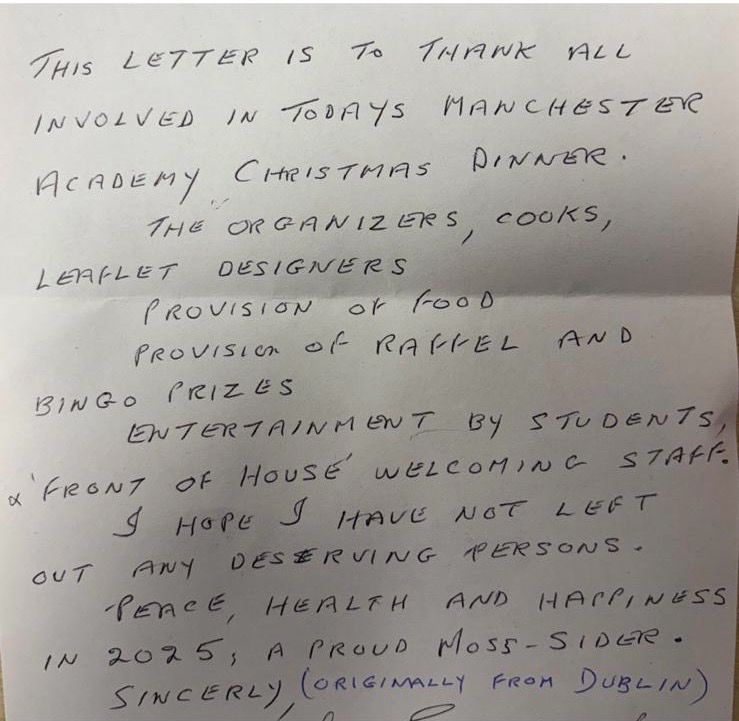 THIS LETTER IS TO THANK ALL
INVOLVED IN TODAYS MANCHESTER
ACADEMY CHRISTMAS DINNER.
THE ORGANIZERS, COOKS,
LEAFLET DESIGNERS
PROVISION OF FOOD
PROVISION OF RAFFEL AND
BINGO PRIZES
ENTERTAINMENT BY STUDENTS,
& 'FRONT OF HOUSE' WELCOMING STAFF.
I HOPE I HAVE NOT LEFT
OUT ANY DESERVING PERSONS.
PEACE, HEALTH AND HAPPINESS
IN 2025; A PROUD MOSS-SIDER.
SINCERLY, (ORIGINALLY FROM DUBLIN)